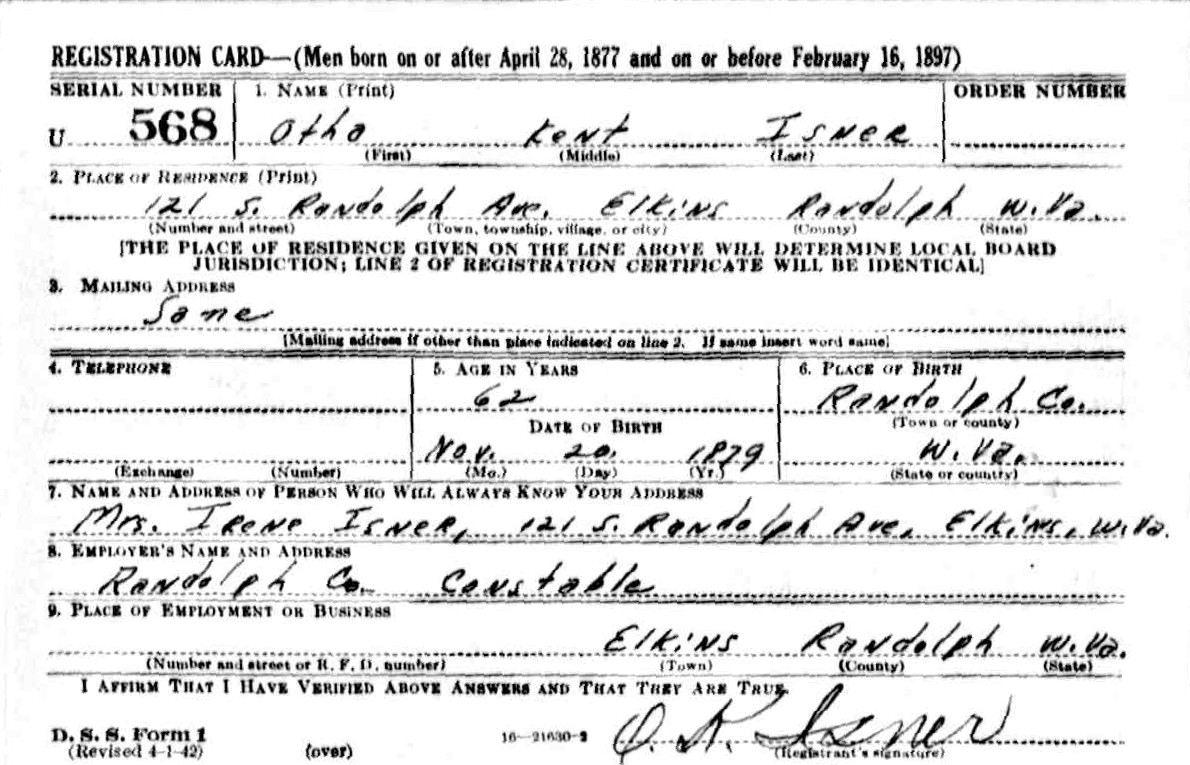 REGISTRATION CARD—(Men born on or after April 28, 1877 and on or before February 16, 1897)
SERIAL NUMBER 1. NAME (Print) ORDER NUMBER
U 568 Otho Kent Isner
(First) (Middle) (Last)
2. PLACE OF RESIDENCE (Print)
121 S. Randolph Ave. Elkins Randolph W.Va.
(Number and street) (Town, township, village, or city) (County) (State)
[THE PLACE OF RESIDENCE GIVEN ON THE LINE ABOVE WILL DETERMINE LOCAL BOARD
JURISDICTION; LINE 2 OF REGISTRATION CERTIFICATE WILL BE IDENTICAL]
3. MAILING ADDRESS
Same
[Mailing address if other than place indicated on line 2. If same insert word same]
4. TELEPHONE 5. AGE IN YEARS 6. PLACE OF BIRTH
62 Randolph Co.
DATE OF BIRTH (Town or county)
Nov. 20. 1879 W.Va.
(Exchange) (Number) (Mo.) (Day) (Yr.) (State or country)
7. NAME AND ADDRESS OF PERSON WHO WILL ALWAYS KNOW YOUR ADDRESS
Mrs. Irene Isner, 121 S. Randolph Ave, Elkins, W.Va.
8. EMPLOYER'S NAME AND ADDRESS
Randolph Co. Constable
9. PLACE OF EMPLOYMENT OR BUSINESS
Elkins Randolph W.Va.
(Number and street or R. F. D. number) (Town) (County) (State)
I AFFIRM THAT I HAVE VERIFIED ABOVE ANSWERS AND THAT THEY ARE TRUE.
D. S. S. Form 1 16—21630-2 O. K. Isner
(Revised 4-1-42) (over) (Registrant's signature)